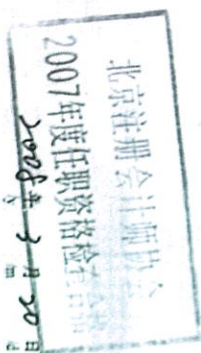 北京注册会计师协会
2007年度任职资格检
2008年3月 日
y m d